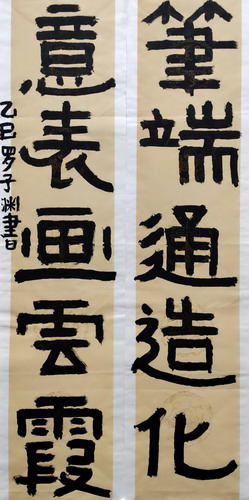 筆端通造化
意表画雲霞
乙巳罗子渊書